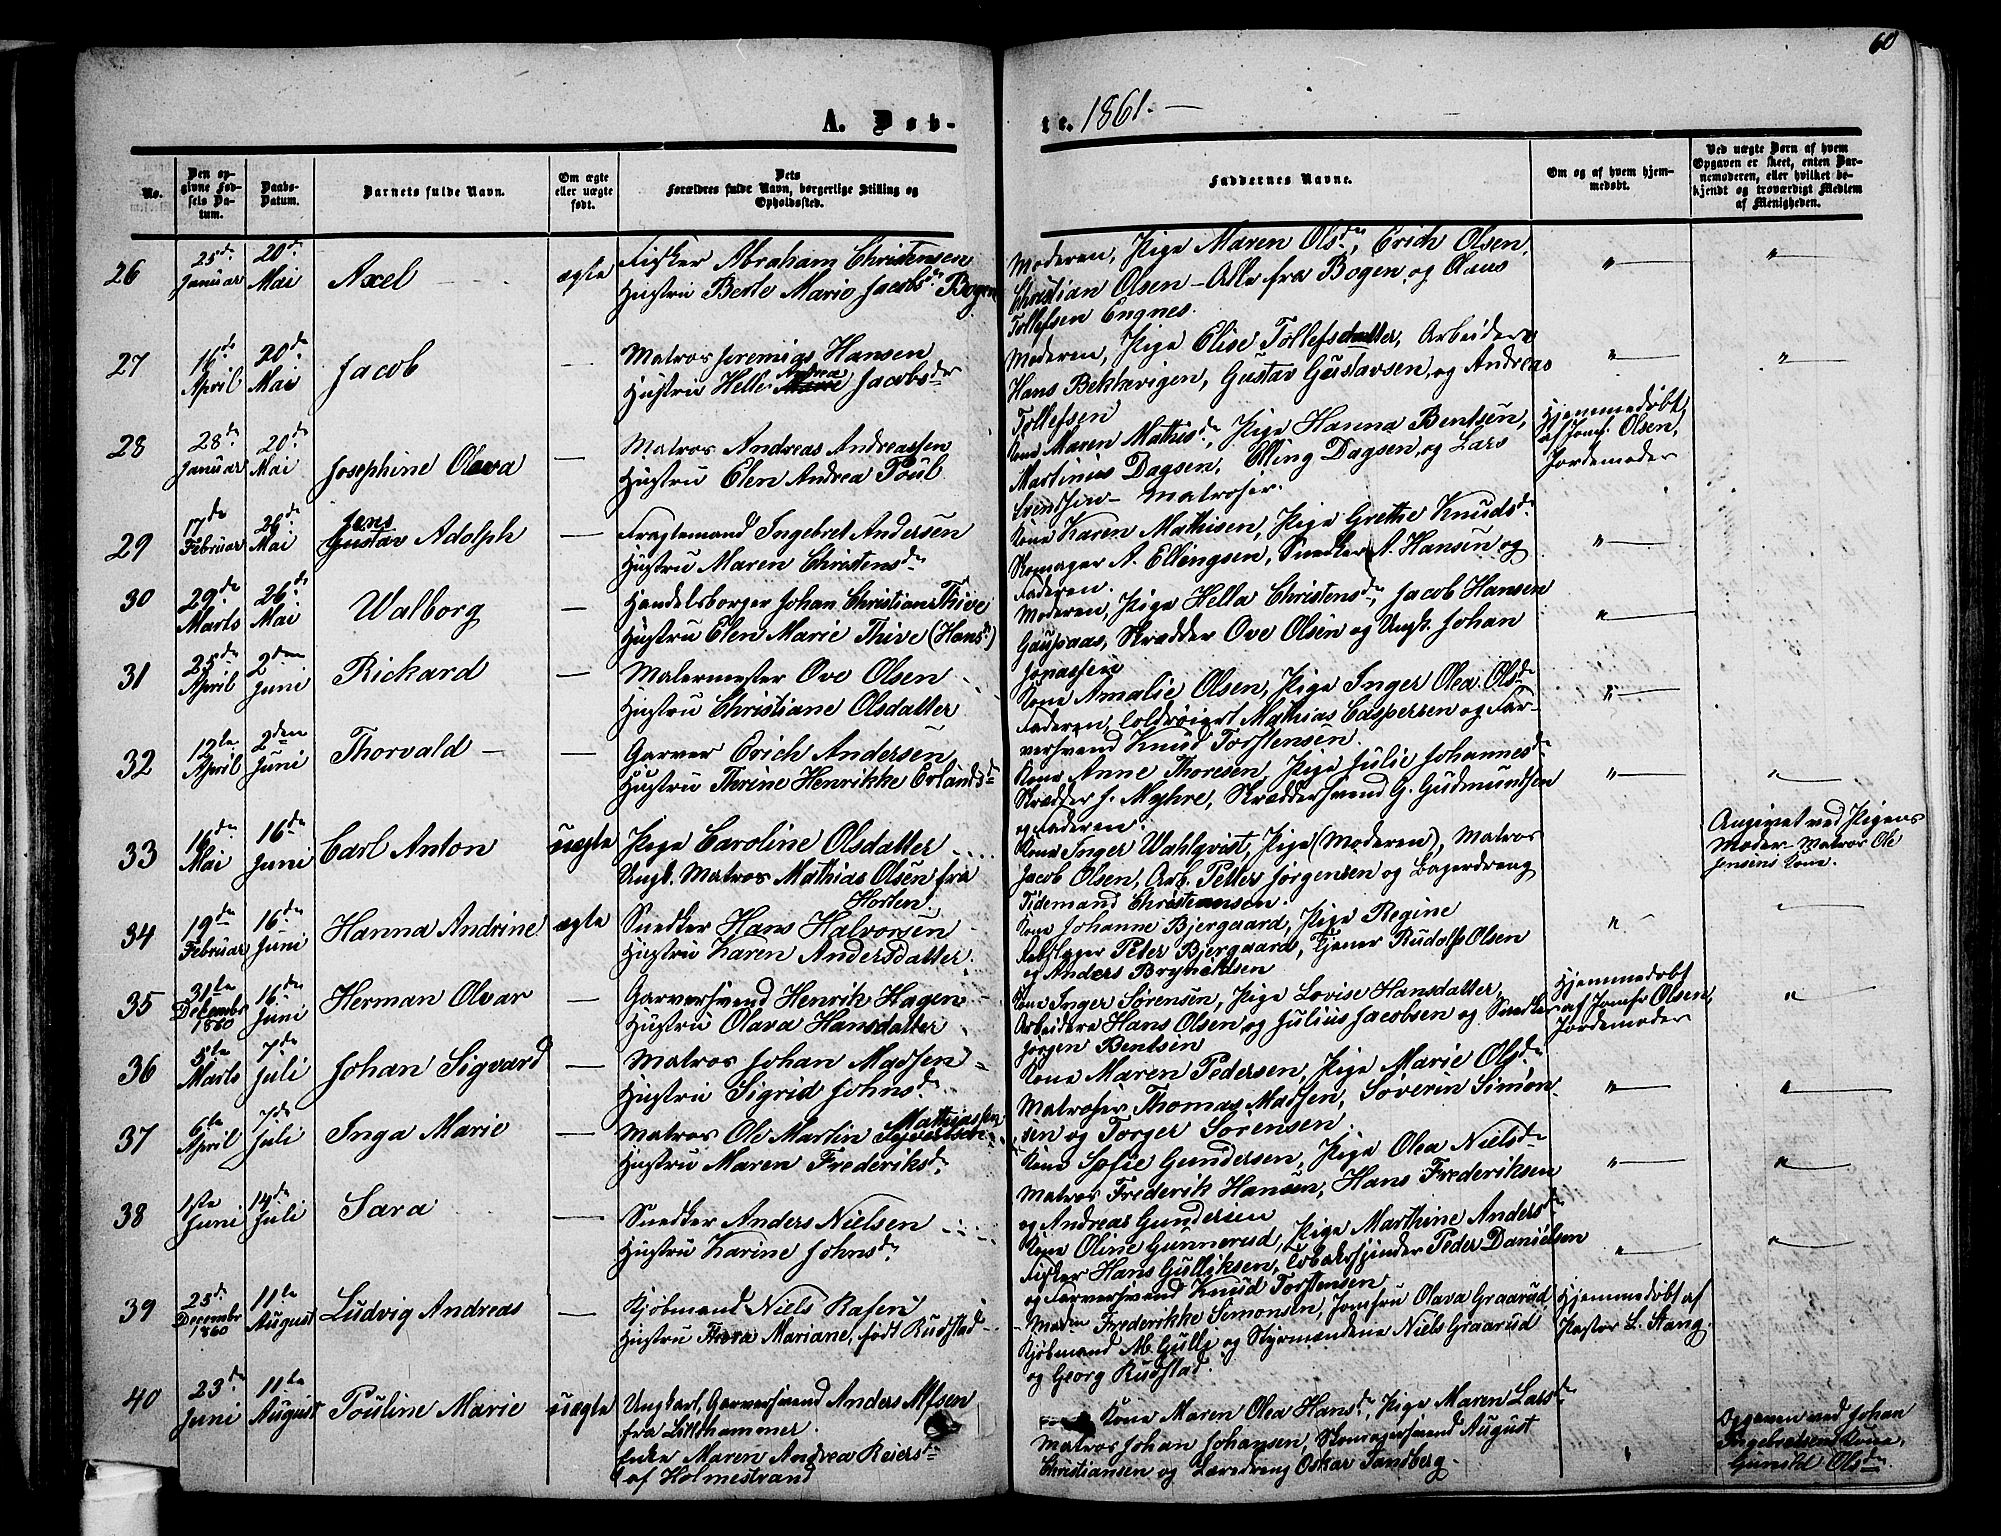 60
A. Døb-
te. 1861.
No.
Den opgivne Fødsels Datum.
Daabs-Datum.
Barnets fulde Navn.
Om ægte eller uægte født.
Dets Forældres fulde Navn, borgerlige Stilling og Opholdssted.
Faddernes Navne.
Om og af hvem hjemmedøbt.
Ved uægte Børn af hvem Opgaven er skeet, enten Barnemoderen, eller hvilket bekjendt og troværdigt Medlem af Menigheden.
26
25de Januar
20de Mai
Axel
ægte
Fisker Abraham Christensen
Hustru Berte Marie Jacobsdr Bogen
Moderen, Pige Maren Olsdr, Erich Olsen,
Christian Olsen - Alle fra Bogen, og Claus
Tollefsen Engnes.
27
16de April
20de Mai
Jacob
Matros Jeremias Hansen
Hustru Helle Andrea Jacobsdr
Moderen, Pige Elise Tollefsdatter, Arbeidere
Hans Bekkevigen, Gustav Gustavsen, og Andreas
Tollefsen
28
28de Januar
20de Mai
Josephine Olava
Matros Andreas Andreassen
Hustru Elen Andrea Poul
Kone Maren Mathisdr, Pige Hanna Bentsen,
Martinius Dagsen, Elling Dagsen, og Lars
Svendsen - Matroser.
Hjemmedøbt
af Jomf. Olsen,
Jordemoder
29
17de Februar
26de Mai
Jens
Gustav Adolph
Fragtemand Ingebret Andersen
Hustru Maren Christensdr
Kone Karen Mathisen, Pige Grethe Knudsdr
Skomager A. Ellingsen, Snedker A. Hansen og
Faderen.
30
29de Marts
26de Mai
Walborg
Handelsborger Johan Christian Thive
Hustru Elen Marie Thive (Hansdr)
Moderen, Pige Hella Christensdr, Jacob Hansen
Gaupaas, Skrædder Ove Olsen og Ungk. Johan
Jonassen
31
25de April
2den Juni
Rickard
Malermester Ove Olsen
Hustru Christiane Olsdatter
Kone Amalie Olsen, Pige Inger Olea Olsdr
Faderen, Mathias Caspersen og Far-
versvend Knud Torstensen.
32
12te April
2den Juni
Thorvald
Garver Erich Andersen
Hustru Therine Henrikke Erlandsdr
Kone Anne Thoresen, Pige Julie Johannesdr
Skrædder J. Myhre, Skræddersvend G. Gudmundsen
og Faderen.
33
16de Mai
16de Juni
Carl Anton
uægte
Pige Caroline Olsdatter
Ungk. Matros Mathias Olsen fra
Horten.
Kone Inger Wahlqvist, Pige (Moderen), Matros
Jacob Olsen, Arb. Petter Jørgensen og Bagerdreng
Tidemand Christiansen.
Angivet ved Pigens
Moder - Matros Ole
Jensens Kone.
34
19de Februar
16de Juni
Hanna Andrine
ægte
Snedker Hans Halvorsen
Hustru Karen Andersdatter
Kone Johanne Bjergaard, Pige Regine
Rebslager Peter Bjergaard, Tjener Rudolf Olsen
og Anders Brynildsen
35
31te Decembr 1860
16de Juni
Herman Olvar
Garversvend Henrik Hagen
Hustru Olava Hansdatter
Kone Inger Sørensen, Pige Lovise Hansdatter,
Arbeidere Hans Olsen, og Julius Jacobsen og Snedker
Jørgen Bentsen
Hjemmedøbt
af Jomfr Olsen,
Jordemoder
36
5te Marts
7de Juli
Johan Sigvard
Matros Johan Madsen
Hustru Sigrid Johnsdr
Kone Maren Pedersen, Pige Marie Olsdr
Matroser Thomas Madsen, Søveren Simon-
sen og Torger Sørensen.
37
6te April
7de Juli
Inga Marie
Mathiassen
Matros Ole Martin Syvertsen
Hustru Maren Frederiksdr
Kone Sofie Gundersen, Pige Olea Nielsdr
Matros Frederik Hansen, Hans Frederiksen
og Andreas Gundersen
38
1ste Juni
14de Juli
Sara
Snedker Anders Nielsen
Hustru Karine Johnsdr
Kone Oline Gunnerud, Pige Marthine Andersdr
Fisker Hans Gulliksen, Tobakspinder Peder Danielsen
og Farversvend Knud Torstensen
39
25de Decembr 1860
11te August
Ludvig Andreas
Kjøbmand Niels Rafen
Hustru Thora Mariane, født Rudstad
Madm Frederikke Simonsen, Jomfru Olava Graarud,
Kjøbmand M. Gullj og Styrmændene Niels Graarud
og Georg Rudstad.
Hjemmedøbt af
Pastor L. Stang.
40
23de Juni
11te August
Pouline Marie
uægte
Ungkarl, Garversvend Anders Alfsen
fra Lillehammer.
Enke Maren Andrea Reiersdr
af Holmestrand
Kone Maren Olea Hansdr, Pige Maren Larsdr
Matros Johan Johansen, Skomagersvend August
Christiansen og Læredreng Oskar Tandberg.
Opgaven ved Johan
Ingebretsens Kone,
Gunild Olsdr.